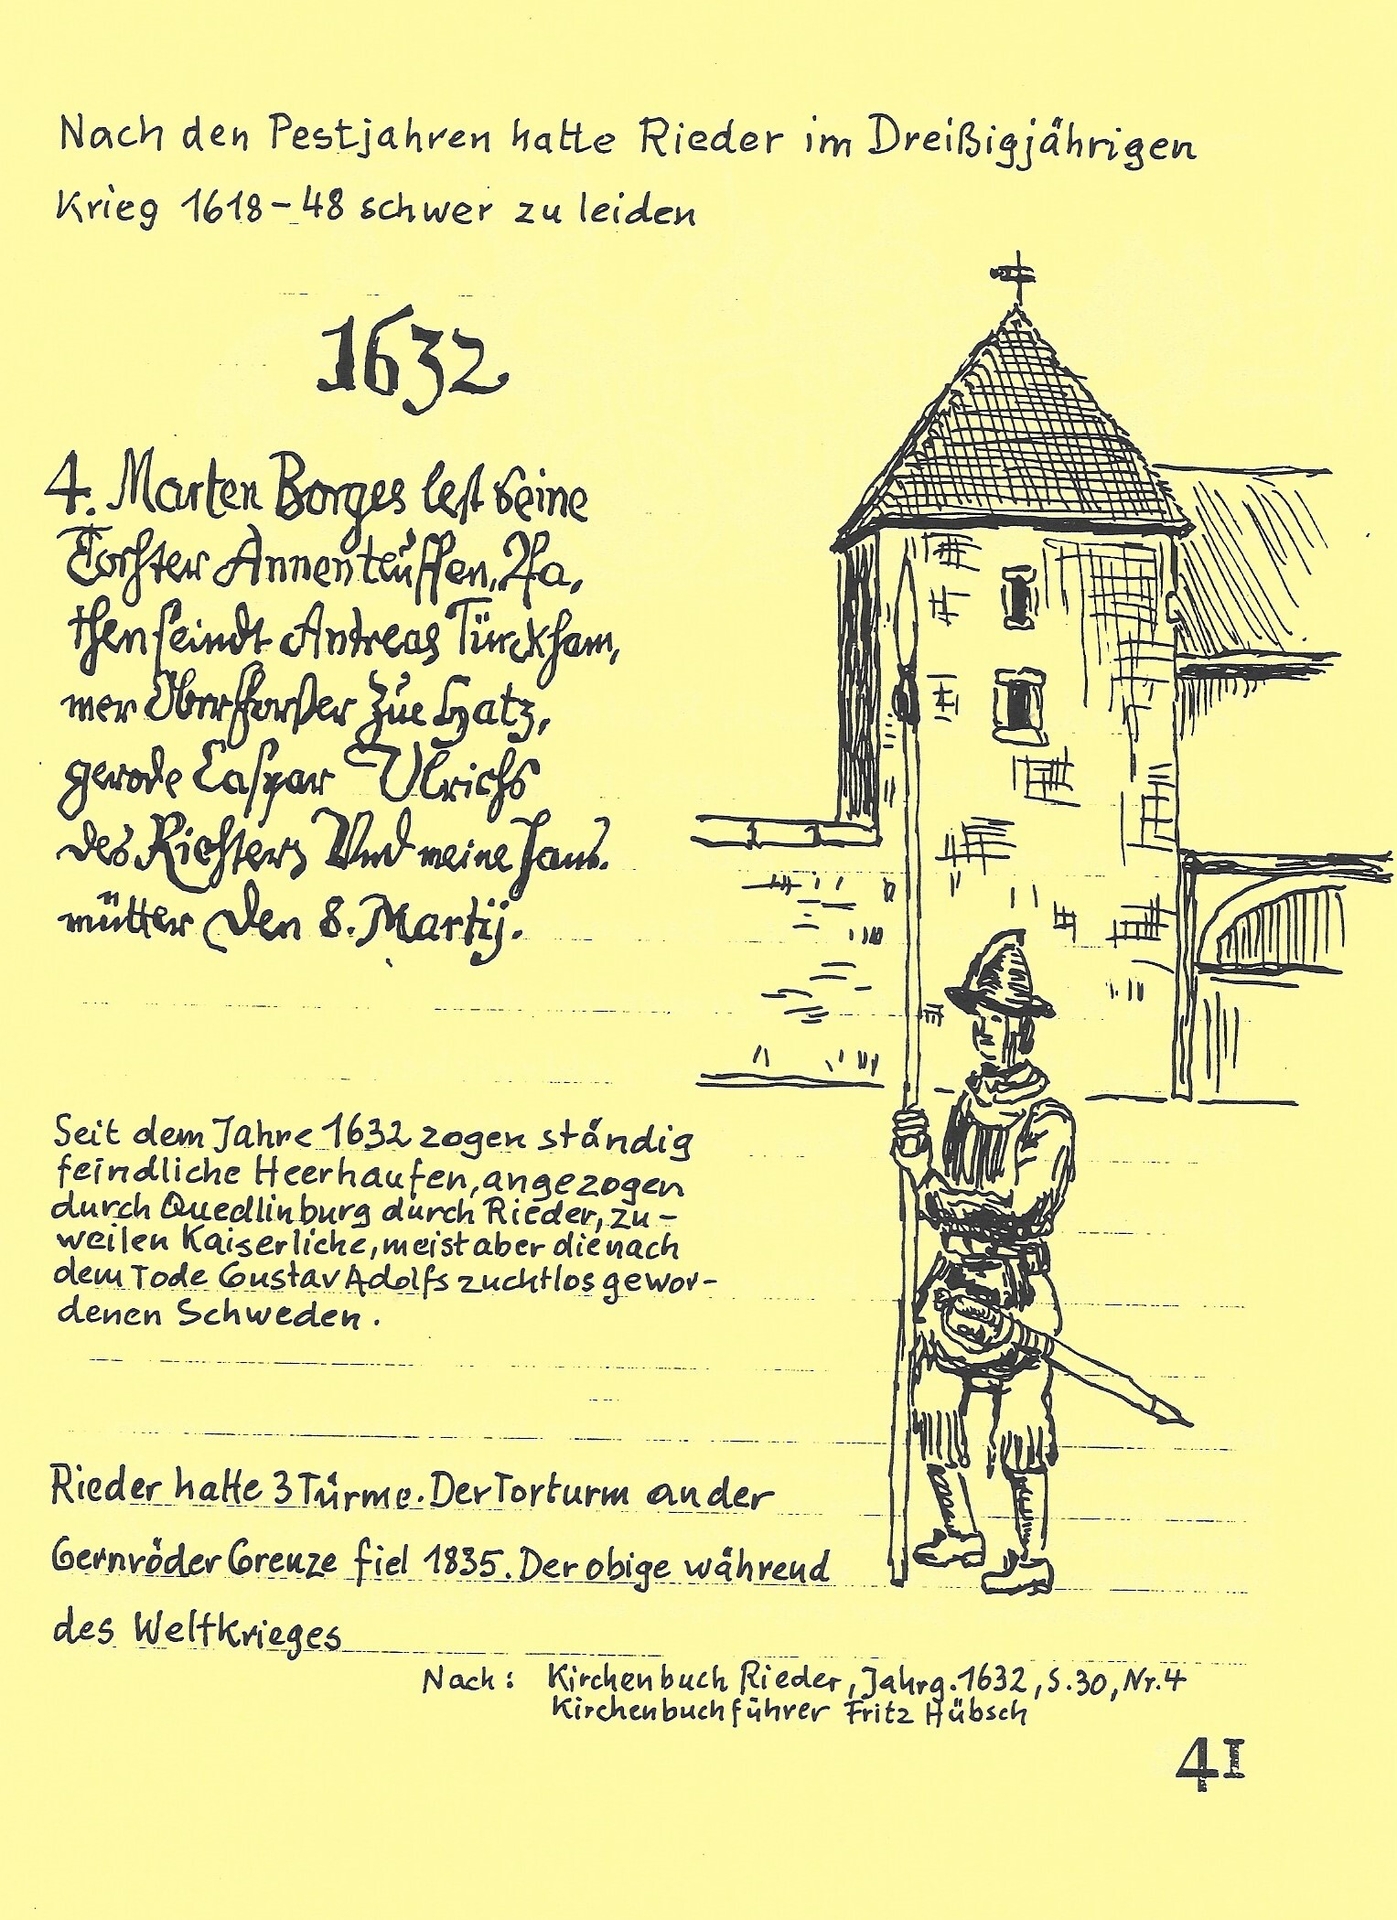 Nach den Pestjahren hatte Rieder im Dreißigjährigen
Krieg 1618-48 schwer zu leiden
1632
4. Marten Borges lest seine
Tochter Annen teuffen, Pa,
then seindt Andreas Türckham,
mer Oberforster zue Hatz,
gerode Caspar Ulrichs
des Richters Vnd meine Haus.
mütter den 8. Martij.
Seit dem Jahre 1632 zogen ständig
feindliche Heerhaufen, angezogen
durch Quedlinburg durch Rieder, zu-
weilen Kaiserliche, meist aber die nach
dem Tode Gustav Adolfs zuchtlos gewor-
denen Schweden.
Rieder hatte 3 Türme. Der Torturm an der
Gernröder Grenze fiel 1835. Der obige während
des Weltkrieges
Nach: Kirchenbuch Rieder, Jahrg. 1632, S. 30, Nr. 4
Kirchenbuchführer Fritz Hübsch
41